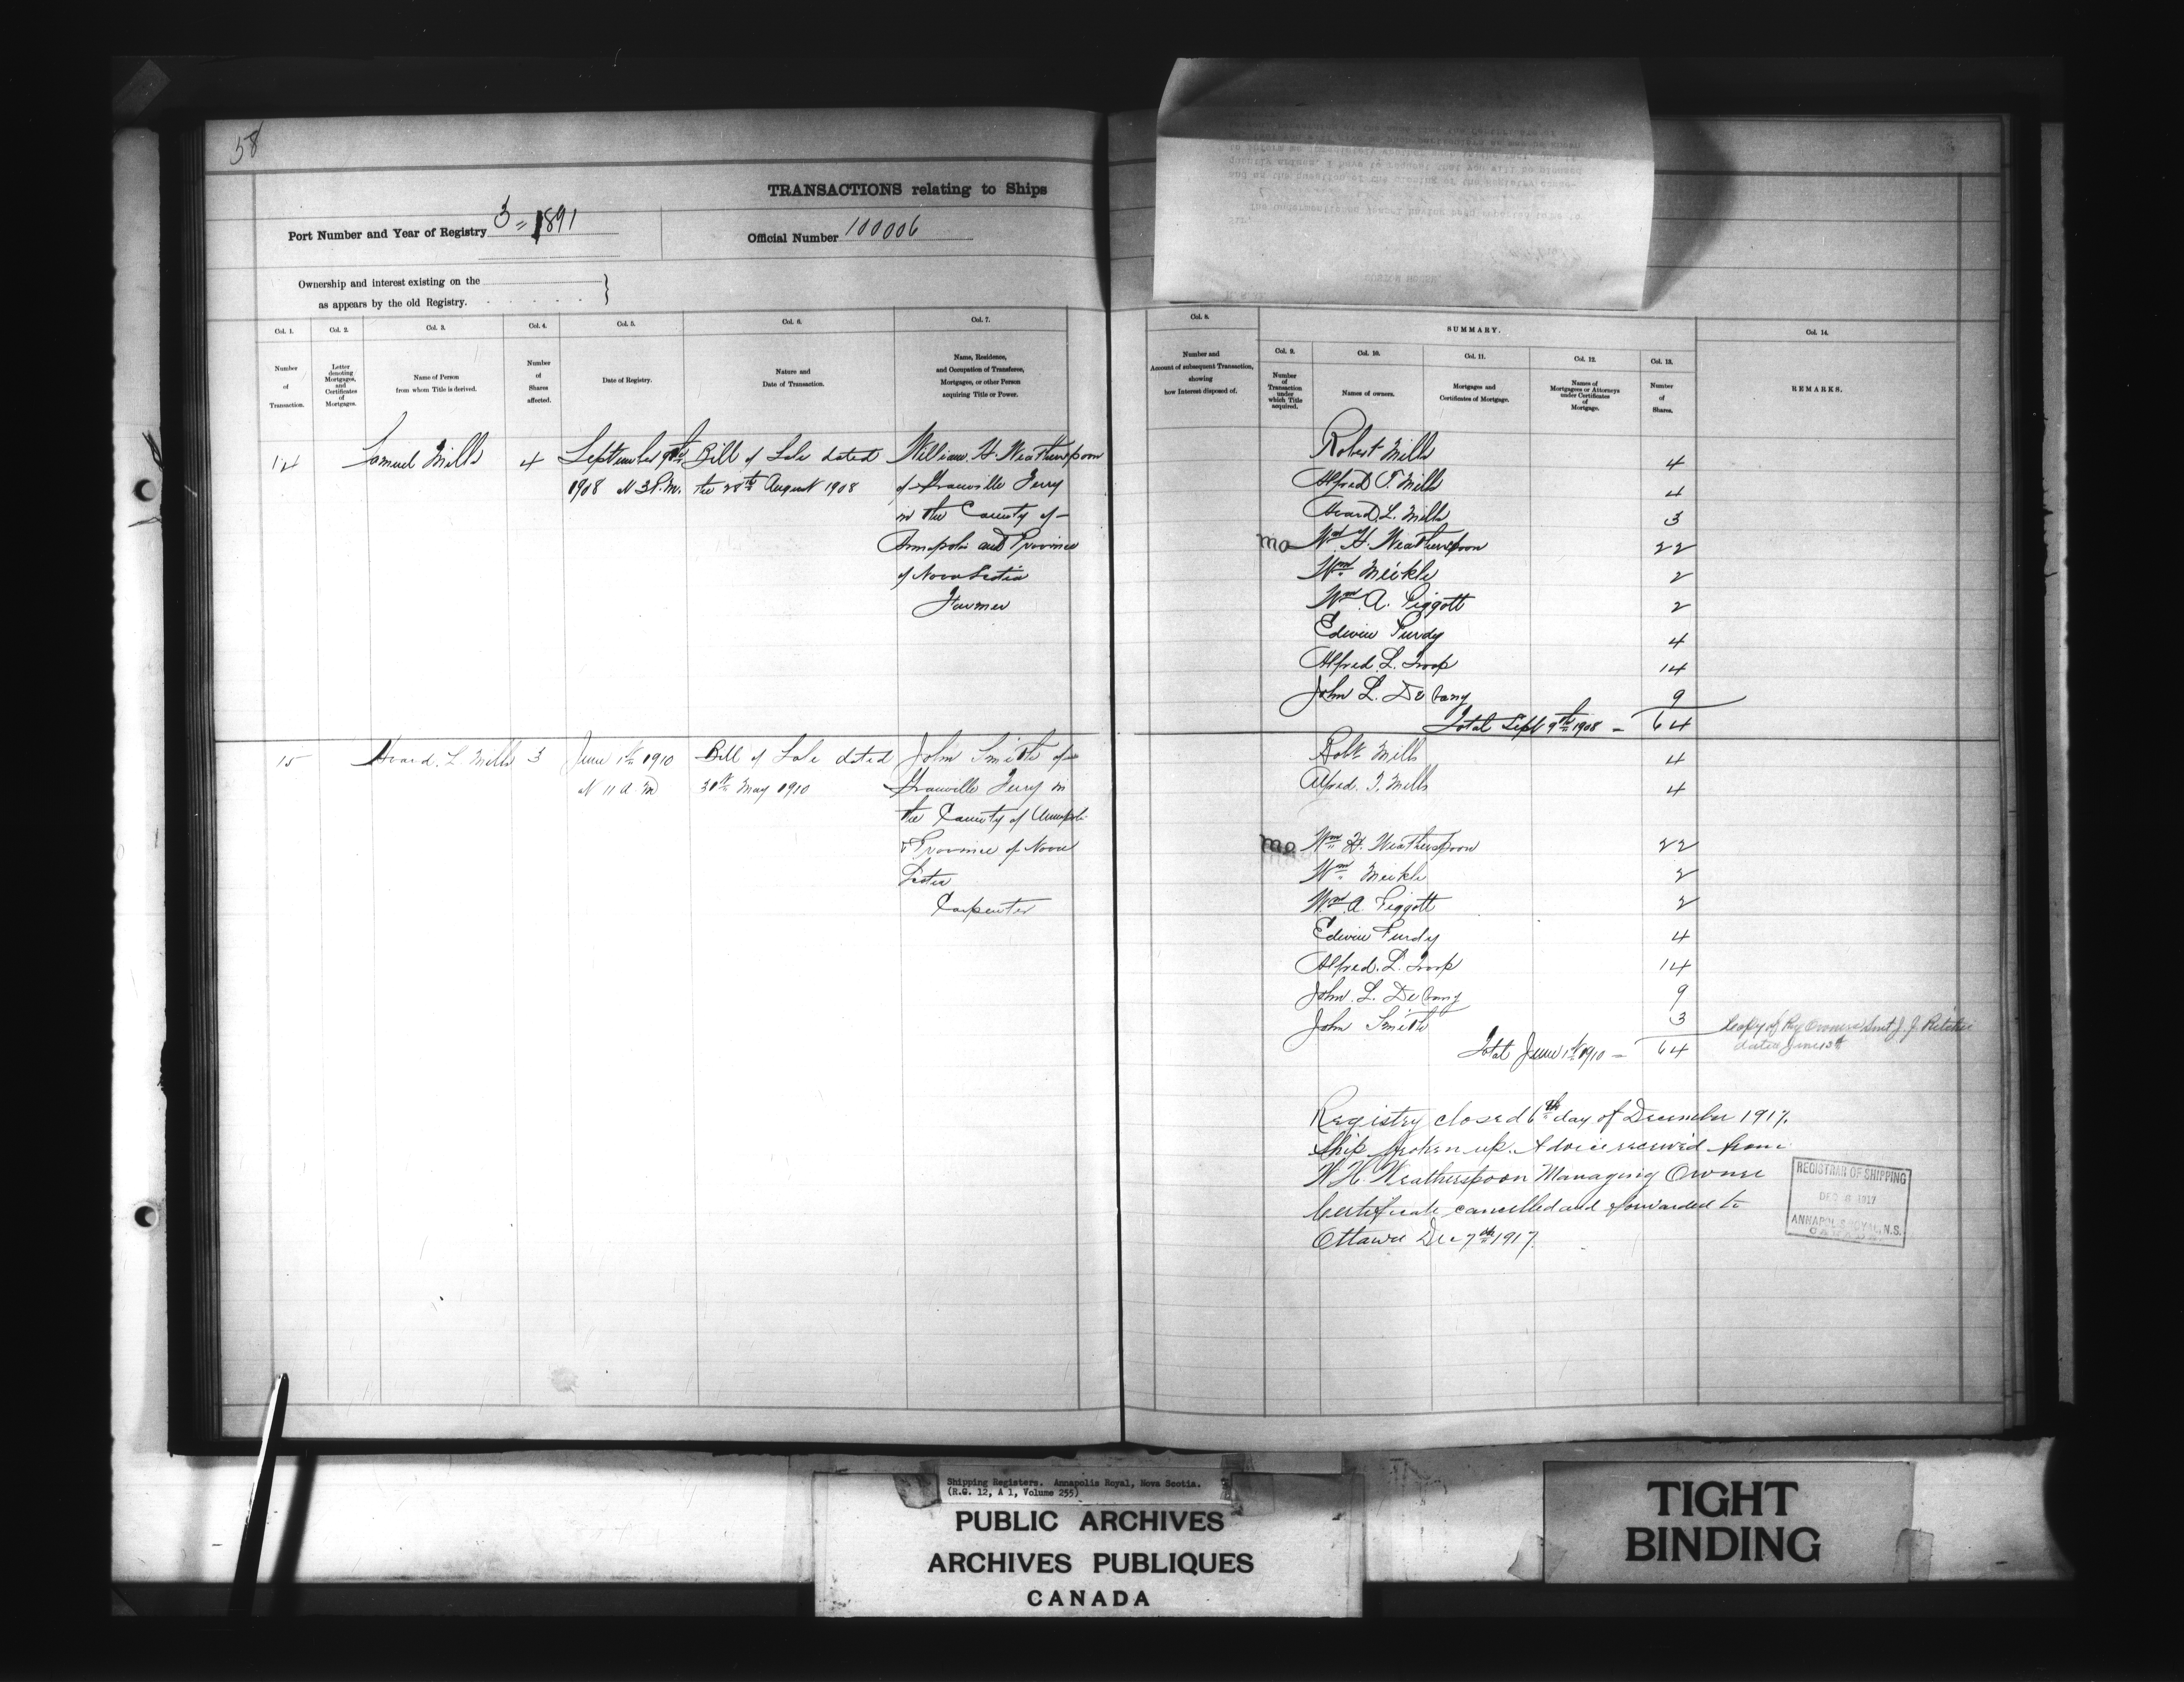 58
TRANSACTIONS relating to Ships
Port Number and Year of Registry 3 = 1891
Official Number 100006
Ownership and interest existing on the
as appears by the old Registry.
Col. 1.
Number
of
Transaction.
Col. 2.
Letter
denoting
Mortgages,
and
Certificates
of
Mortgages.
Col. 3.
Name of Person
from whom Title is derived.
Col. 4.
Number
of
Shares
affected.
Col. 5.
Date of Registry.
Col. 6.
Nature and
Date of Transaction.
Col. 7.
Name, Residence,
and Occupation of Transferee,
Mortgagee, or other Person
acquiring Title or Power.
Col. 8.
Number and
Account of subsequent Transaction,
showing
how Interest disposed of.
SUMMARY.
Col. 9.
Number
of
Transaction
under
which Title
acquired.
Col. 10.
Names of owners.
Col. 11.
Mortgages and
Certificates of Mortgage.
Col. 12.
Names of
Mortgagees or Attorneys
under Certificates
of
Mortgage.
Col. 13.
Number
of
Shares.
Col. 14.
REMARKS.
14
Samuel Mills
4
September 9th
1908 at 3 P.M.
Bill of Sale dated
the 28th August 1908
William H. Weatherspoon
of Granville Ferry
in the County of
Annapolis and Province
of Nova Scotia
Farmer
Robert Mills 4
Alfred T. Mills 4
Avard L. Mills 3
mo Wm H. Weatherspoon 22
Wm Meikle 2
Wm A. Piggott 2
Edwin Purdy 4
Alfred L. Troop 14
John L. DeVany 9
Total Sept 9th 1908 - 64
15
Avard L. Mills
3
June 1st 1910
at 11 a.m
Bill of Sale dated
30th May 1910
John Smith of
Granville Ferry in
the County of Annapolis
& Province of Nova
Scotia
Carpenter
Robt Mills 4
Alfred T. Mills 4
mo Wm H. Weatherspoon 22
Wm Meikle 2
Wm A. Piggott 2
Edwin Purdy 4
Alfred L. Troop 14
John L. DeVany 9
John Smith 3
Total June 1st 1910 - 64
Copy of Reg Owners sent J. J. Ritchie
dated June 13th
Registry closed 6th day of December 1917.
Ship broken up. Advice received from
W. H. Weatherspoon Managing Owner
Certificate cancelled and forwarded to
Ottawa Dec 7th 1917.
REGISTRAR OF SHIPPING
DEC 8 1917
ANNAPOLIS ROYAL, N.S.
CANADA
Shipping Registers. Annapolis Royal, Nova Scotia.
(R.G. 12, A 1, Volume 255)
PUBLIC ARCHIVES
ARCHIVES PUBLIQUES
CANADA
TIGHT
BINDING